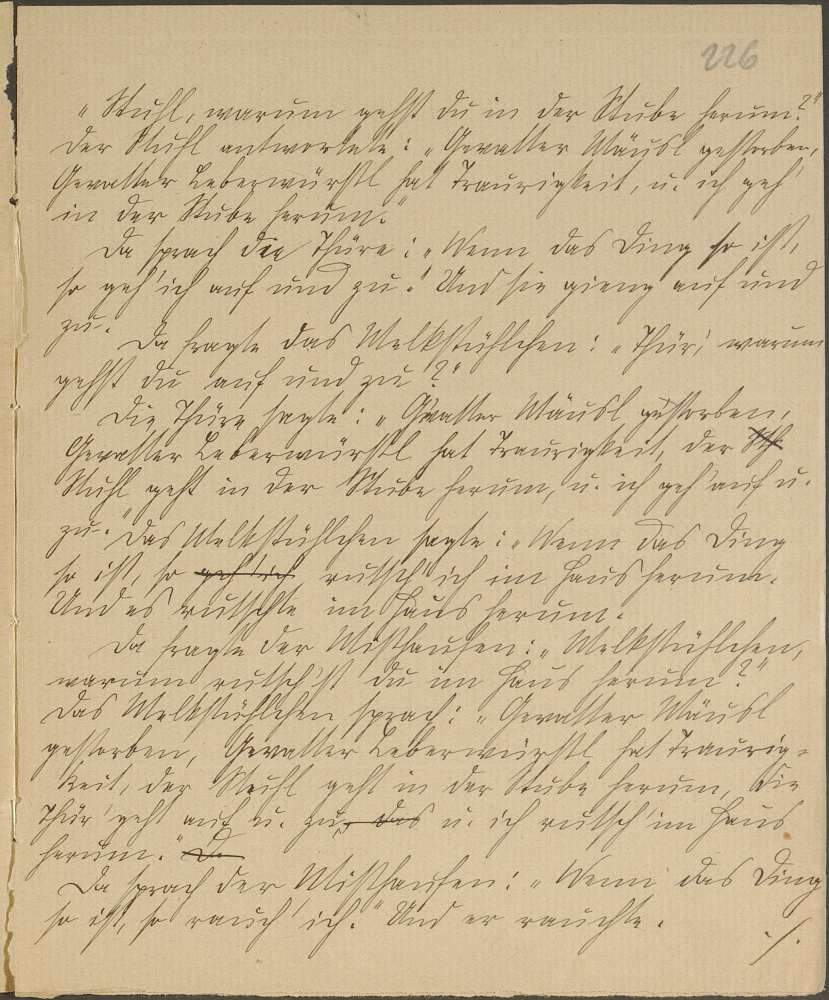 226
„Stuhl, warum gehst du in der Stube herum?“
Der Stuhl antwortete: „Gevatter Mäusl gestorben,
Gevatter Leberwürstl hat Traurigkeit, u. ich geh'
in der Stube herum.“
Da sprach die Thüre: „Wenn das Ding so ist,
so geh' ich auf und zu.“ Und sie gieng auf und
zu.
Da fragte das Melkstühlchen: „Thür', warum
gehst du auf und zu?“
Die Thüre sagte: „Gevatter Mäusl gestorben,
Gevatter Leberwürstl hat Traurigkeit, der Sth
Stuhl geht in der Stube herum, u. ich geh' auf u.
zu.“ Das Melkstühlchen sagte: „Wenn das Ding
so ist, so geh' ich rutsch' ich im Haus herum.
Und es rutschte im Haus herum.
Da fragte der Misthaufen: „Melkstühlchen,
warum rutsch'st du im Haus herum?“
Das Melkstühlchen sprach: „Gevatter Mäusl
gestorben, Gevatter Leberwürstl hat Traurig-
keit, der Stuhl geht in der Stube herum, die
Thür' geht auf u. zu, das u. ich rutsch' im Haus
herum.“ Da
Da sprach der Misthaufen: „Wenn das Ding
so ist, so rauch' ich.“ Und er rauchte.
./.